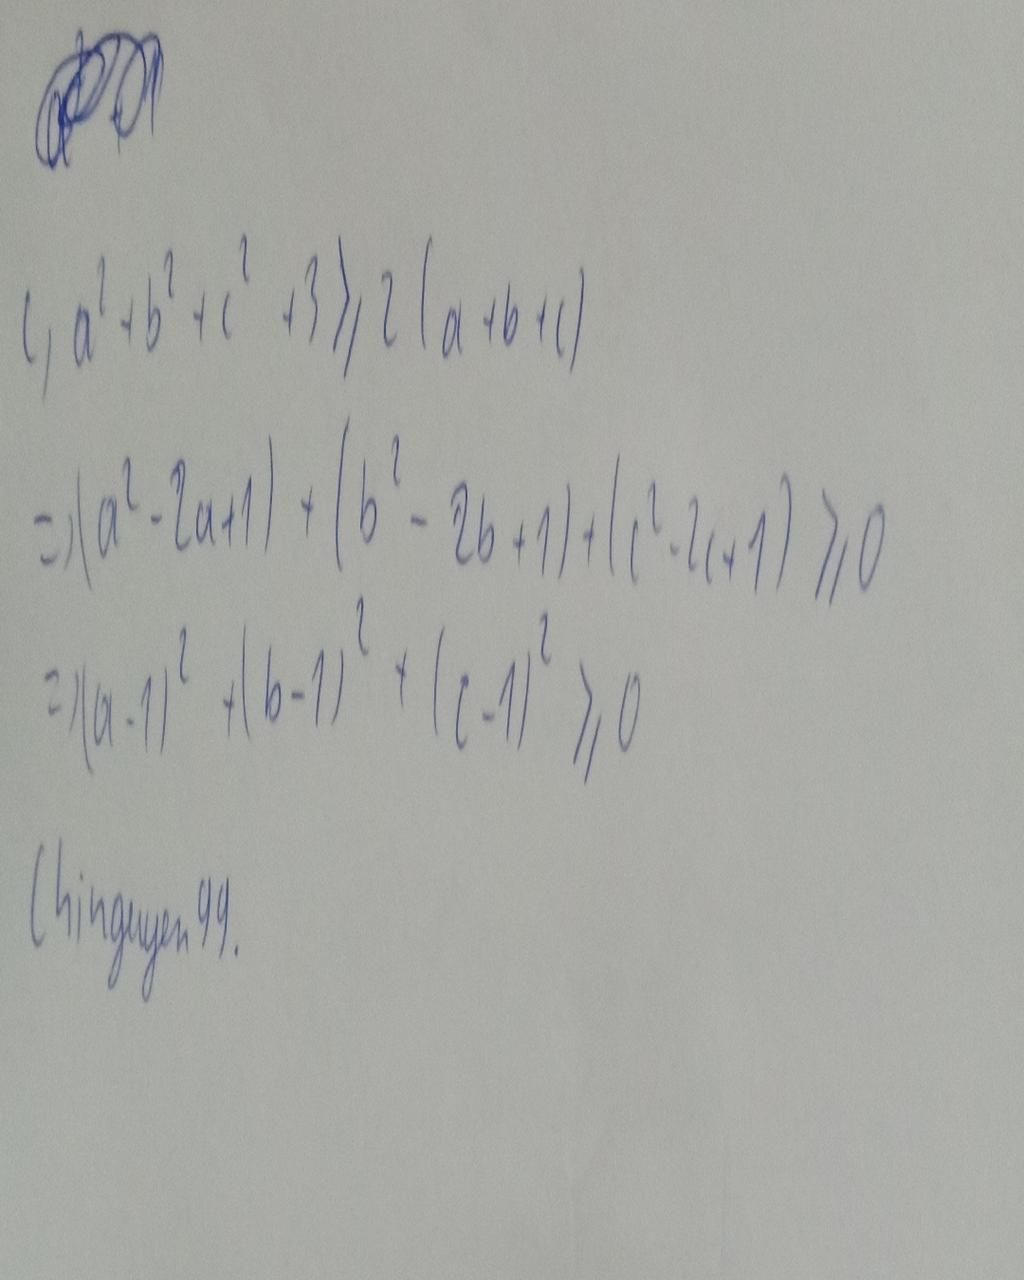 c, a² + b² + c² + 3 ⩾ 2(a + b + c)
=>(a² - 2a + 1) + (b² - 2b + 1) + (c² - 2c + 1) ⩾ 0
=>(a - 1)² + (b - 1)² + (c - 1)² ⩾ 0
Chinguyen99.